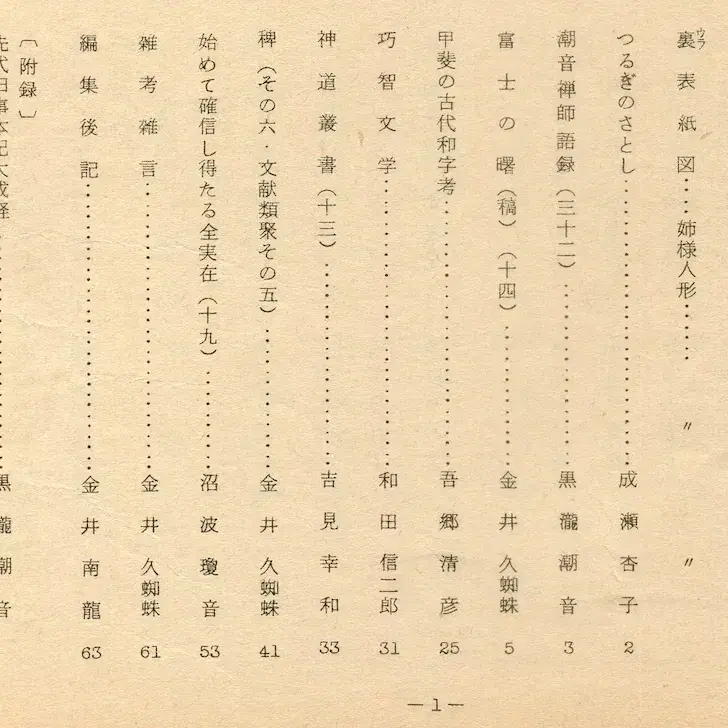 裏表紙図‥‥姉様人形‥‥‥ 〃 〃
ウラ
つるぎのさとし‥‥‥‥‥‥‥‥‥‥成瀬杏子 2
潮音禅師語録(三十二)‥‥‥‥‥‥黒瀧潮音 3
富士の曙(稿)(十四)‥‥‥‥‥金井久蜘蛛 5
甲斐の古代和字考‥‥‥‥‥‥‥‥‥吾郷清彦 25
巧智文学‥‥‥‥‥‥‥‥‥‥和田信二郎 31
神道叢書(十三)‥‥‥‥‥‥‥吉見幸和 33
稗(その六・文献類聚その五)‥‥‥‥‥金井久蜘蛛 41
始めて確信し得たる全実在(十九)‥‥‥沼波瓊音 53
雑考雑言‥‥‥‥‥‥‥‥‥‥金井久蜘蛛 61
編集後記‥‥‥‥‥‥‥‥‥‥金井南龍 63
〔附録〕
先代旧事本紀大成経‥‥‥‥‥‥‥‥黒瀧潮音
—1—